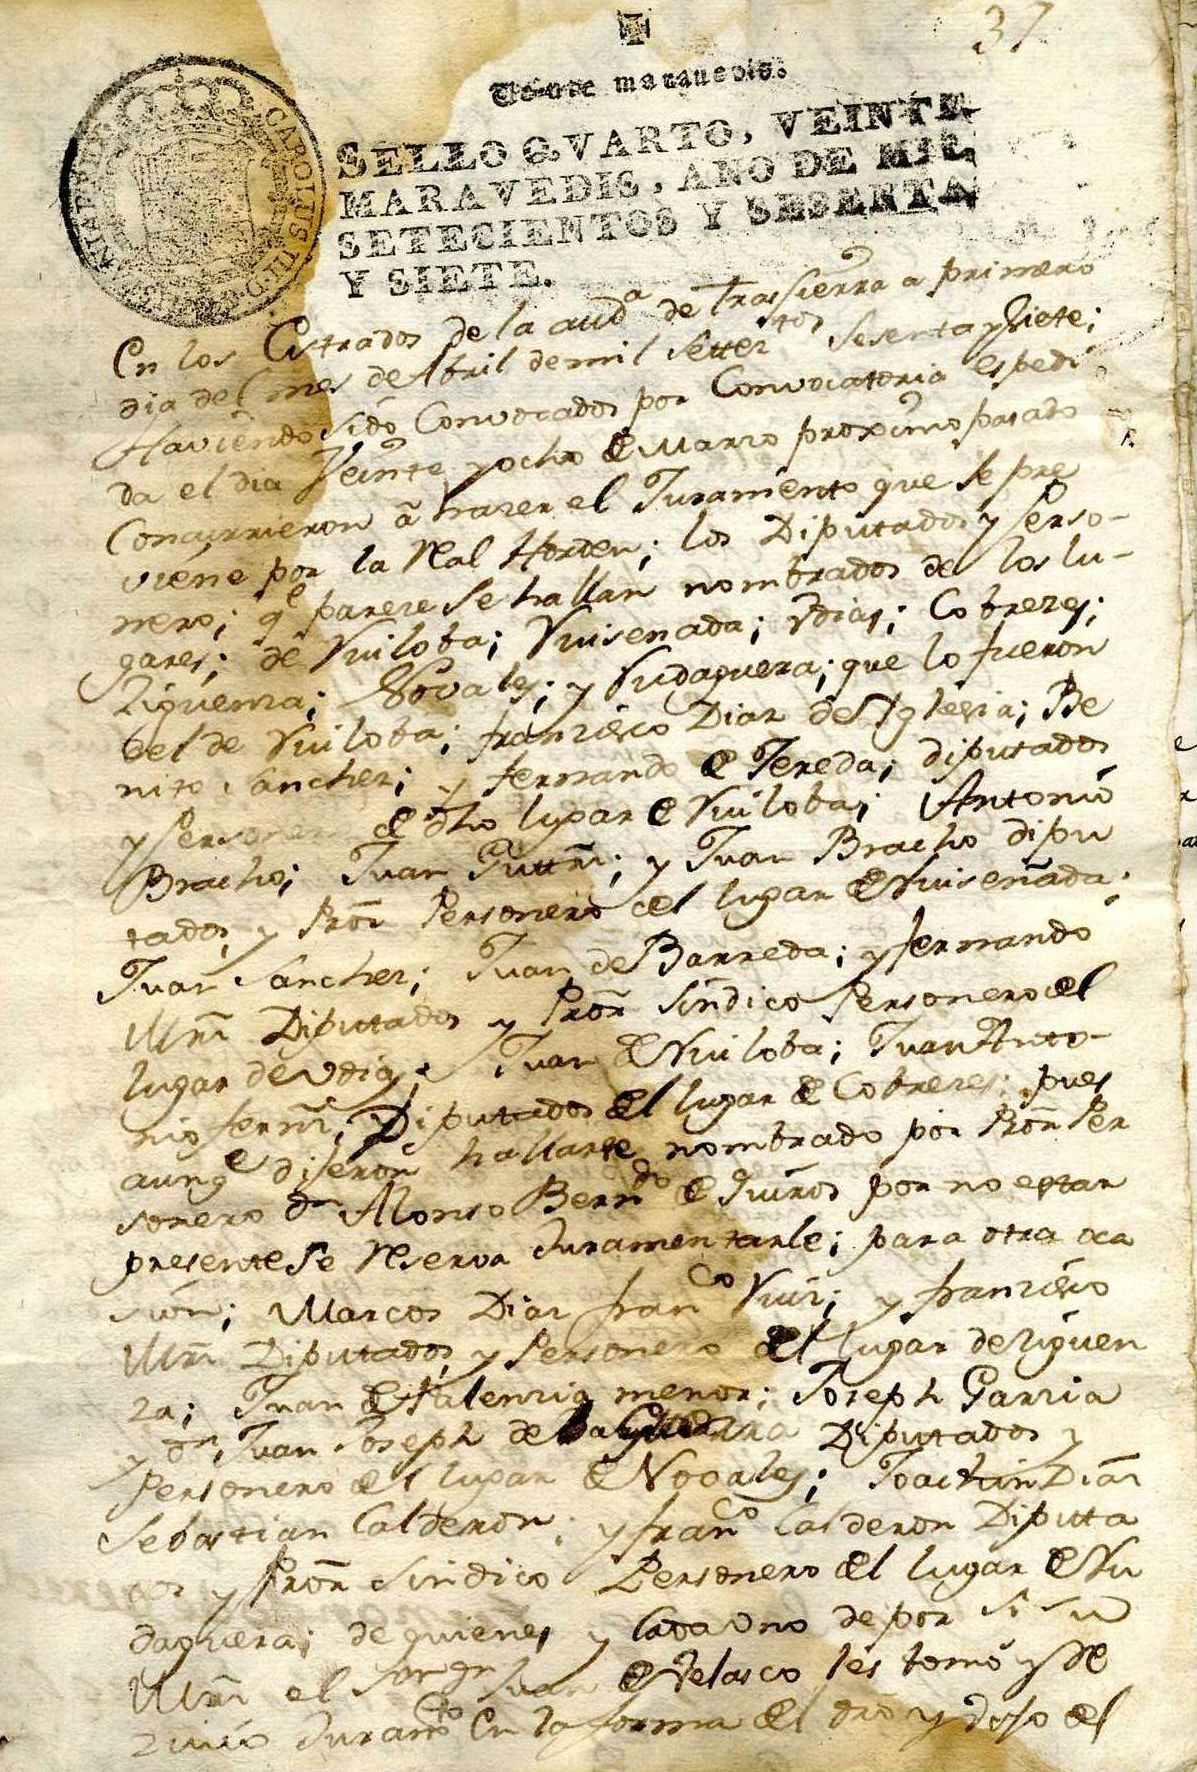 37
Veinte maravedis.
SELLO QVARTO, VEINTE
MARAVEDIS, AÑO DE MIL
SETECIENTOS Y SESENTA
Y SIETE.
CAROLUS III D G
En los Estrados de la audª de Trassierra a primero
dia del mes de Abril de mil setter tos sesenta y siete;
Haviendo sido Convocados por Convocatoria espedi
da el dia Veinte y ocho de Marzo proximo pasado
Concurrieron â hazer el Juramento que se pre
viene por la Real Horden; los Diputados y Perso-
nero; qe pareze se hallan nombrados de los lu-
gares; de Ruiloba; Ruisenada; Vdias; Cobrezes;
Ziguenza; Novales; y Rudaguera; que lo fueron
del de Ruiloba; franzisco Diaz de Yglesia; Be
nito Sanchez; y fernando de Tereda; diputados
y Personero de dho lugar de Ruiloba; Antonio
Bracho; Juan Gutt̃rz; y Juan Bracho dipu
tados, y Pror̃ Personero del lugar de Ruiseñada;
Juan Sanchez; Juan de Barreda; y fernando
Diputados y Pror̃ Sindico Personero del
lugar de Vdias; Juan de Ruiloba; Juan Anto-
nio fernz̃; Diputados del lugar de Cobrezes; pues
aunqe dijeron hallarse nombrado por Pror̃ Per
sonero dn Alonso Berndo de Quiros por no estar
presente se Reserva Juramentarle; para otra oca
sion; Marcos Diaz franco Ruiz; y franzisco
Diputados y Personero del lugar de Ziguen
za; Juan de Valenzia menor; Joseph Garzia
y dn Juan Joseph de Diputados y
Personero del lugar de Novales; Joachin Diaz
Sebastian Calderon; y franco Calderon Diputa
dos y Pror̃ Sindico Personero del lugar de Ru
daguera; de quienes y Cada Vno de por Si su
Mrz̃ el Juan de Velasco les tomó y Re
zivió Juramto En la forma del dro y dejo el